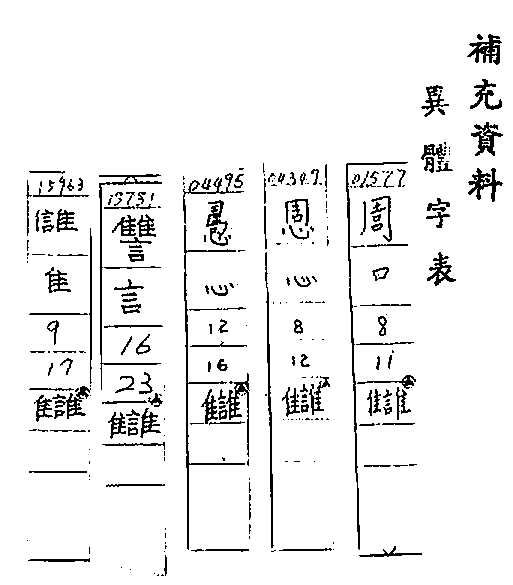 補充資料
異體字表
01577
口
8
11
讎
04347
心
8
12
讎
04495
心
12
16
讎
13781
讐
言
16
23
讎
15963
隹
9
17
讎